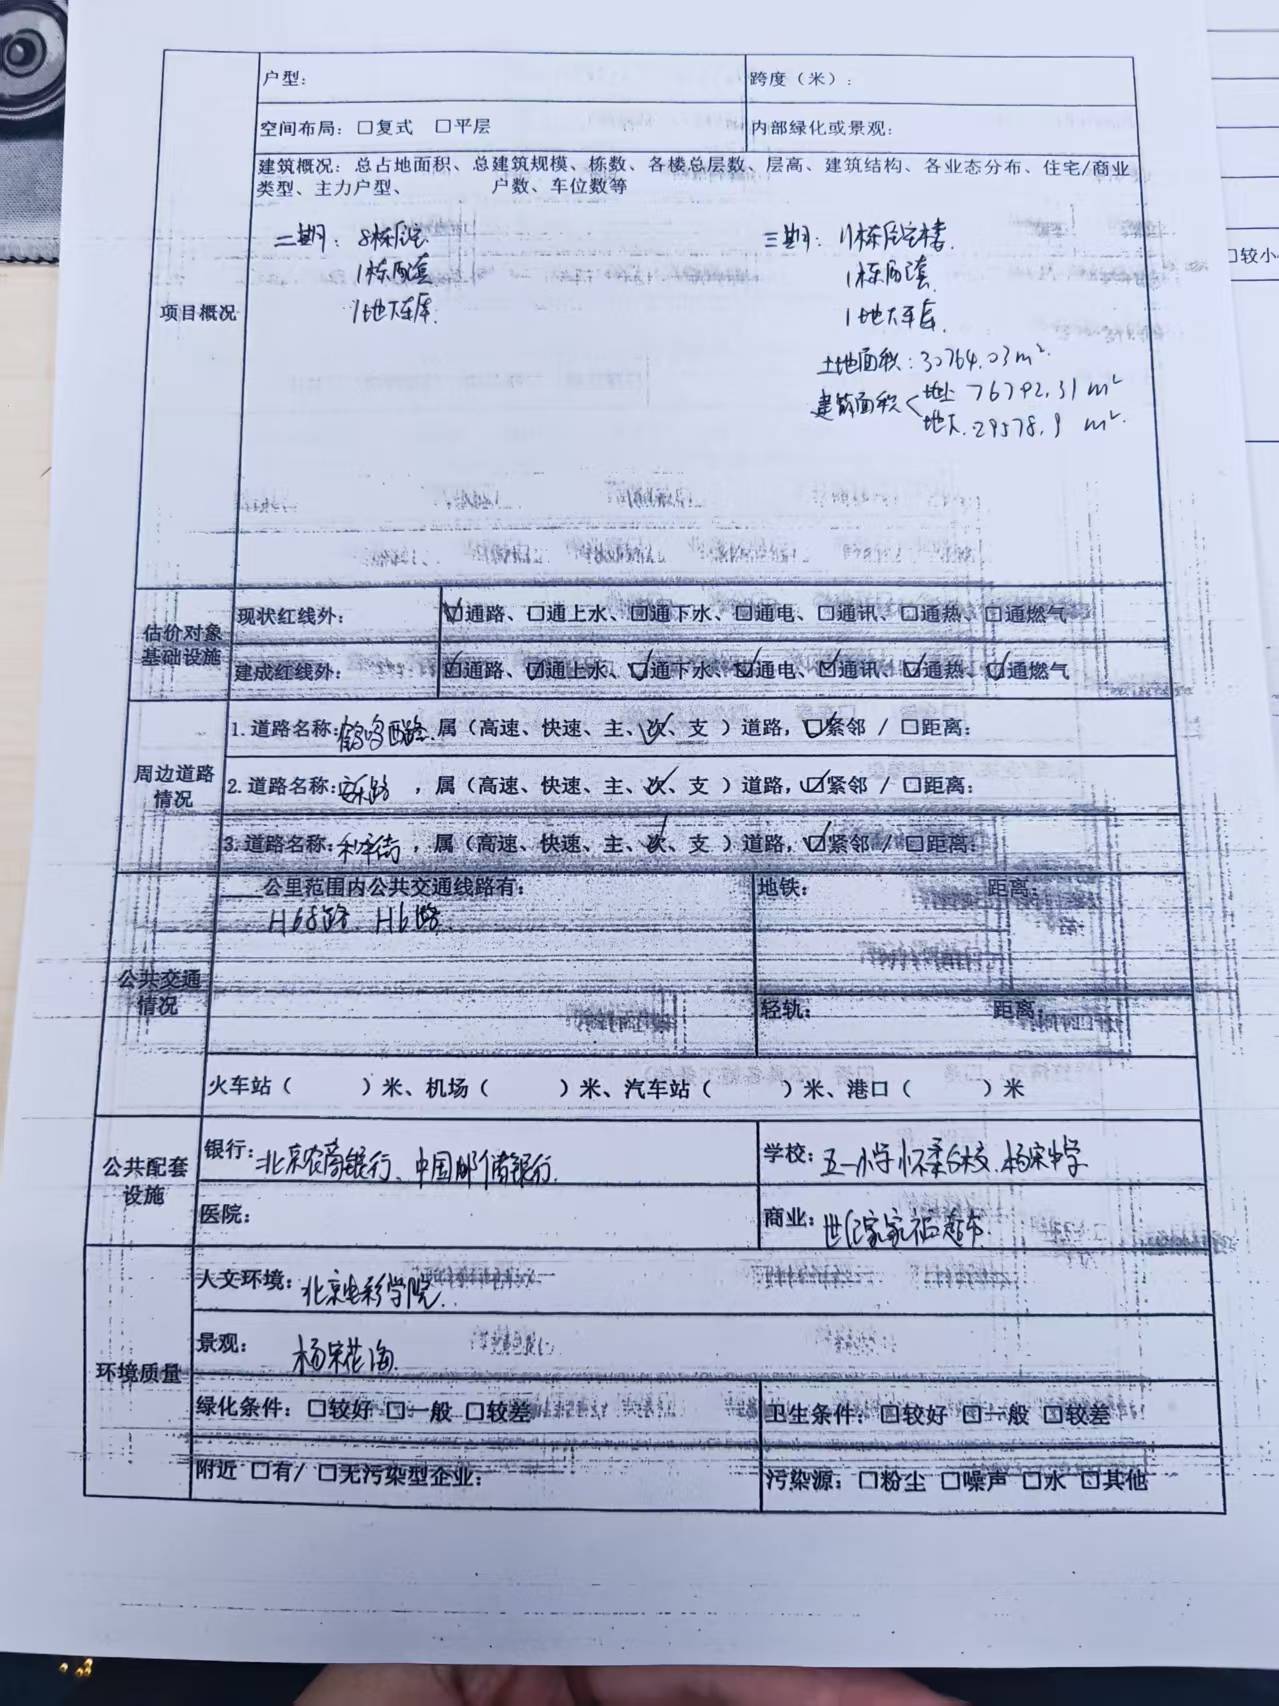 户型：
跨度（米）：
空间布局：☐复式 ☐平层
内部绿化或景观：
建筑概况：总占地面积、总建筑规模、栋数、各楼总层数、层高、建筑结构、各业态分布、住宅/商业
类型、主力户型、 户数、车位数等
项目概况
二期：8栋住宅
1栋配套
1地下车库.
三期：11栋住宅楼.
1栋配套.
1地下车库.
土地面积：30764.03m².
建筑面积 地上 76792.31m²
地下.29578.9 m².
估价对象
基础设施
现状红线外：
☑通路、☐通上水、☐通下水、☐通电、☐通讯、☐通热、☐通燃气
建成红线外：
☑通路、☑通上水、☑通下水、☑通电、☑通讯、☑通热、☑通燃气
周边道路
情况
1.道路名称：鹤鸣西路.属（高速、快速、主、次✓、支 ）道路，☑紧邻 / ☐距离：
2.道路名称：安乐路 ，属（高速、快速、主、次✓、支 ）道路，☑紧邻 / ☐距离：
3.道路名称： ，属（高速、快速、主、次✓、支 ）道路，☑紧邻 / ☐距离：
公共交通
情况
公里范围内公共交通线路有：
H68路. H6路
地铁： 距离：
轻轨： 距离：
火车站（ ）米、机场（ ）米、汽车站（ ）米、港口（ ）米
公共配套
设施
银行：北京农商银行、中国邮储银行.
学校：五一小学怀柔分校.杨宋中学
医院：
商业：世纪家家福超市.
环境质量
人文环境：北京电影学院.
景观： 杨宋花海.
绿化条件：☐较好 ☐一般 ☐较差
卫生条件：☐较好 ☐一般 ☐较差
附近 ☐有/ ☐无污染型企业：
污染源：☐粉尘 ☐噪声 ☐水 ☐其他
☐较小